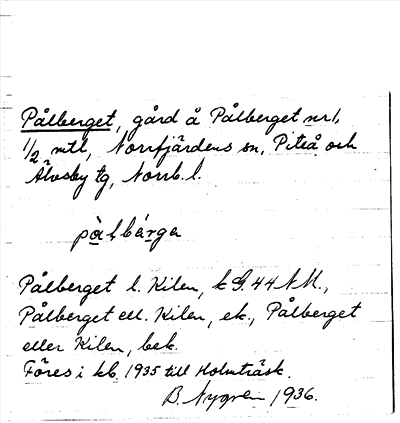 Pålberget, gård å Pålberget nr 1,
1/2 mtl, Norrfjärdens sn, Piteå och
Älvsby tg, Norrb. l.
pålbärga
Pålberget l. Kilen, k G. 44 N M.,
Pålberget ell. Kilen, ek., Pålberget
eller Kilen, bek.
Föres i kb. 1935 till Holmträsk.
B. Nygren 1936.